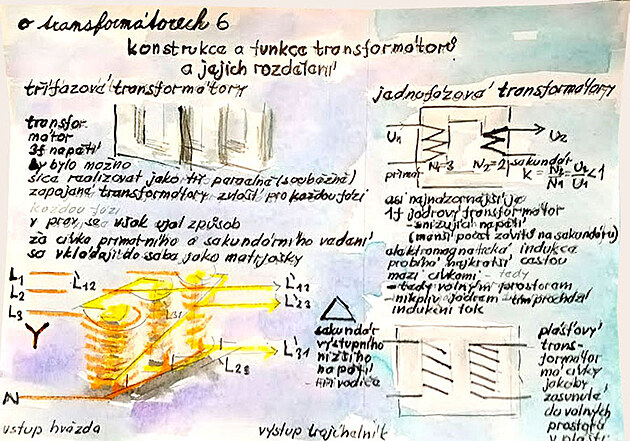 o transformátorech 6
konstrukce a funkce transformátorů
a jajich rozdělaní
třífázová transformátory
transfor-
mátor
3f napětí
by bylo možno
sica realizovat jako tři paraelně (souběžně)
zapojaná transformátory zvlášť pro každou fázi
každou fázi
v praxi se však ujal způsob
za cívka primárního a sakundárního vadaní
sa vkládají do saba jako matrjošky
L1
L2
L3
L12
L31
L12
L23
L31
L23
Y
N
vstup hvězda
výstup trojúhelník
sakundár
výstupního
nižšího
napětí
- tři vodiče
jadnofázová transformátory
U1
U2
primár
N1=3
N2=2
sakundár
k = N2/N1 = U2/U1 < 1
asi najnázornější ja
1f jádrový transformátor
- snižující napětí
(menší počet závitů na sakundáru)
alaktromagnatická indukca
probíhá najkratší castou
mazi cívkami - tedy
- tady volným prostoram
- nikoliv jádram - tím prochází
indukční tok
plášťový
trans-
formátor
má cívky
jakoby
zasunulé
do volných
prostorů
v plášti